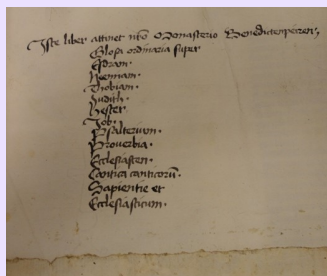 Iste liber attinet nr̄o Monasterio Benedictenpeẅren,
Glosa ordinaria super
Esdram.
Neemiam.
Thobiam.
Judith.
Hester.
Job.
Psalterium.
Proverbia.
Ecclesiasten.
Cantica canticorū.
Sapientie et
Ecclesiasticum.